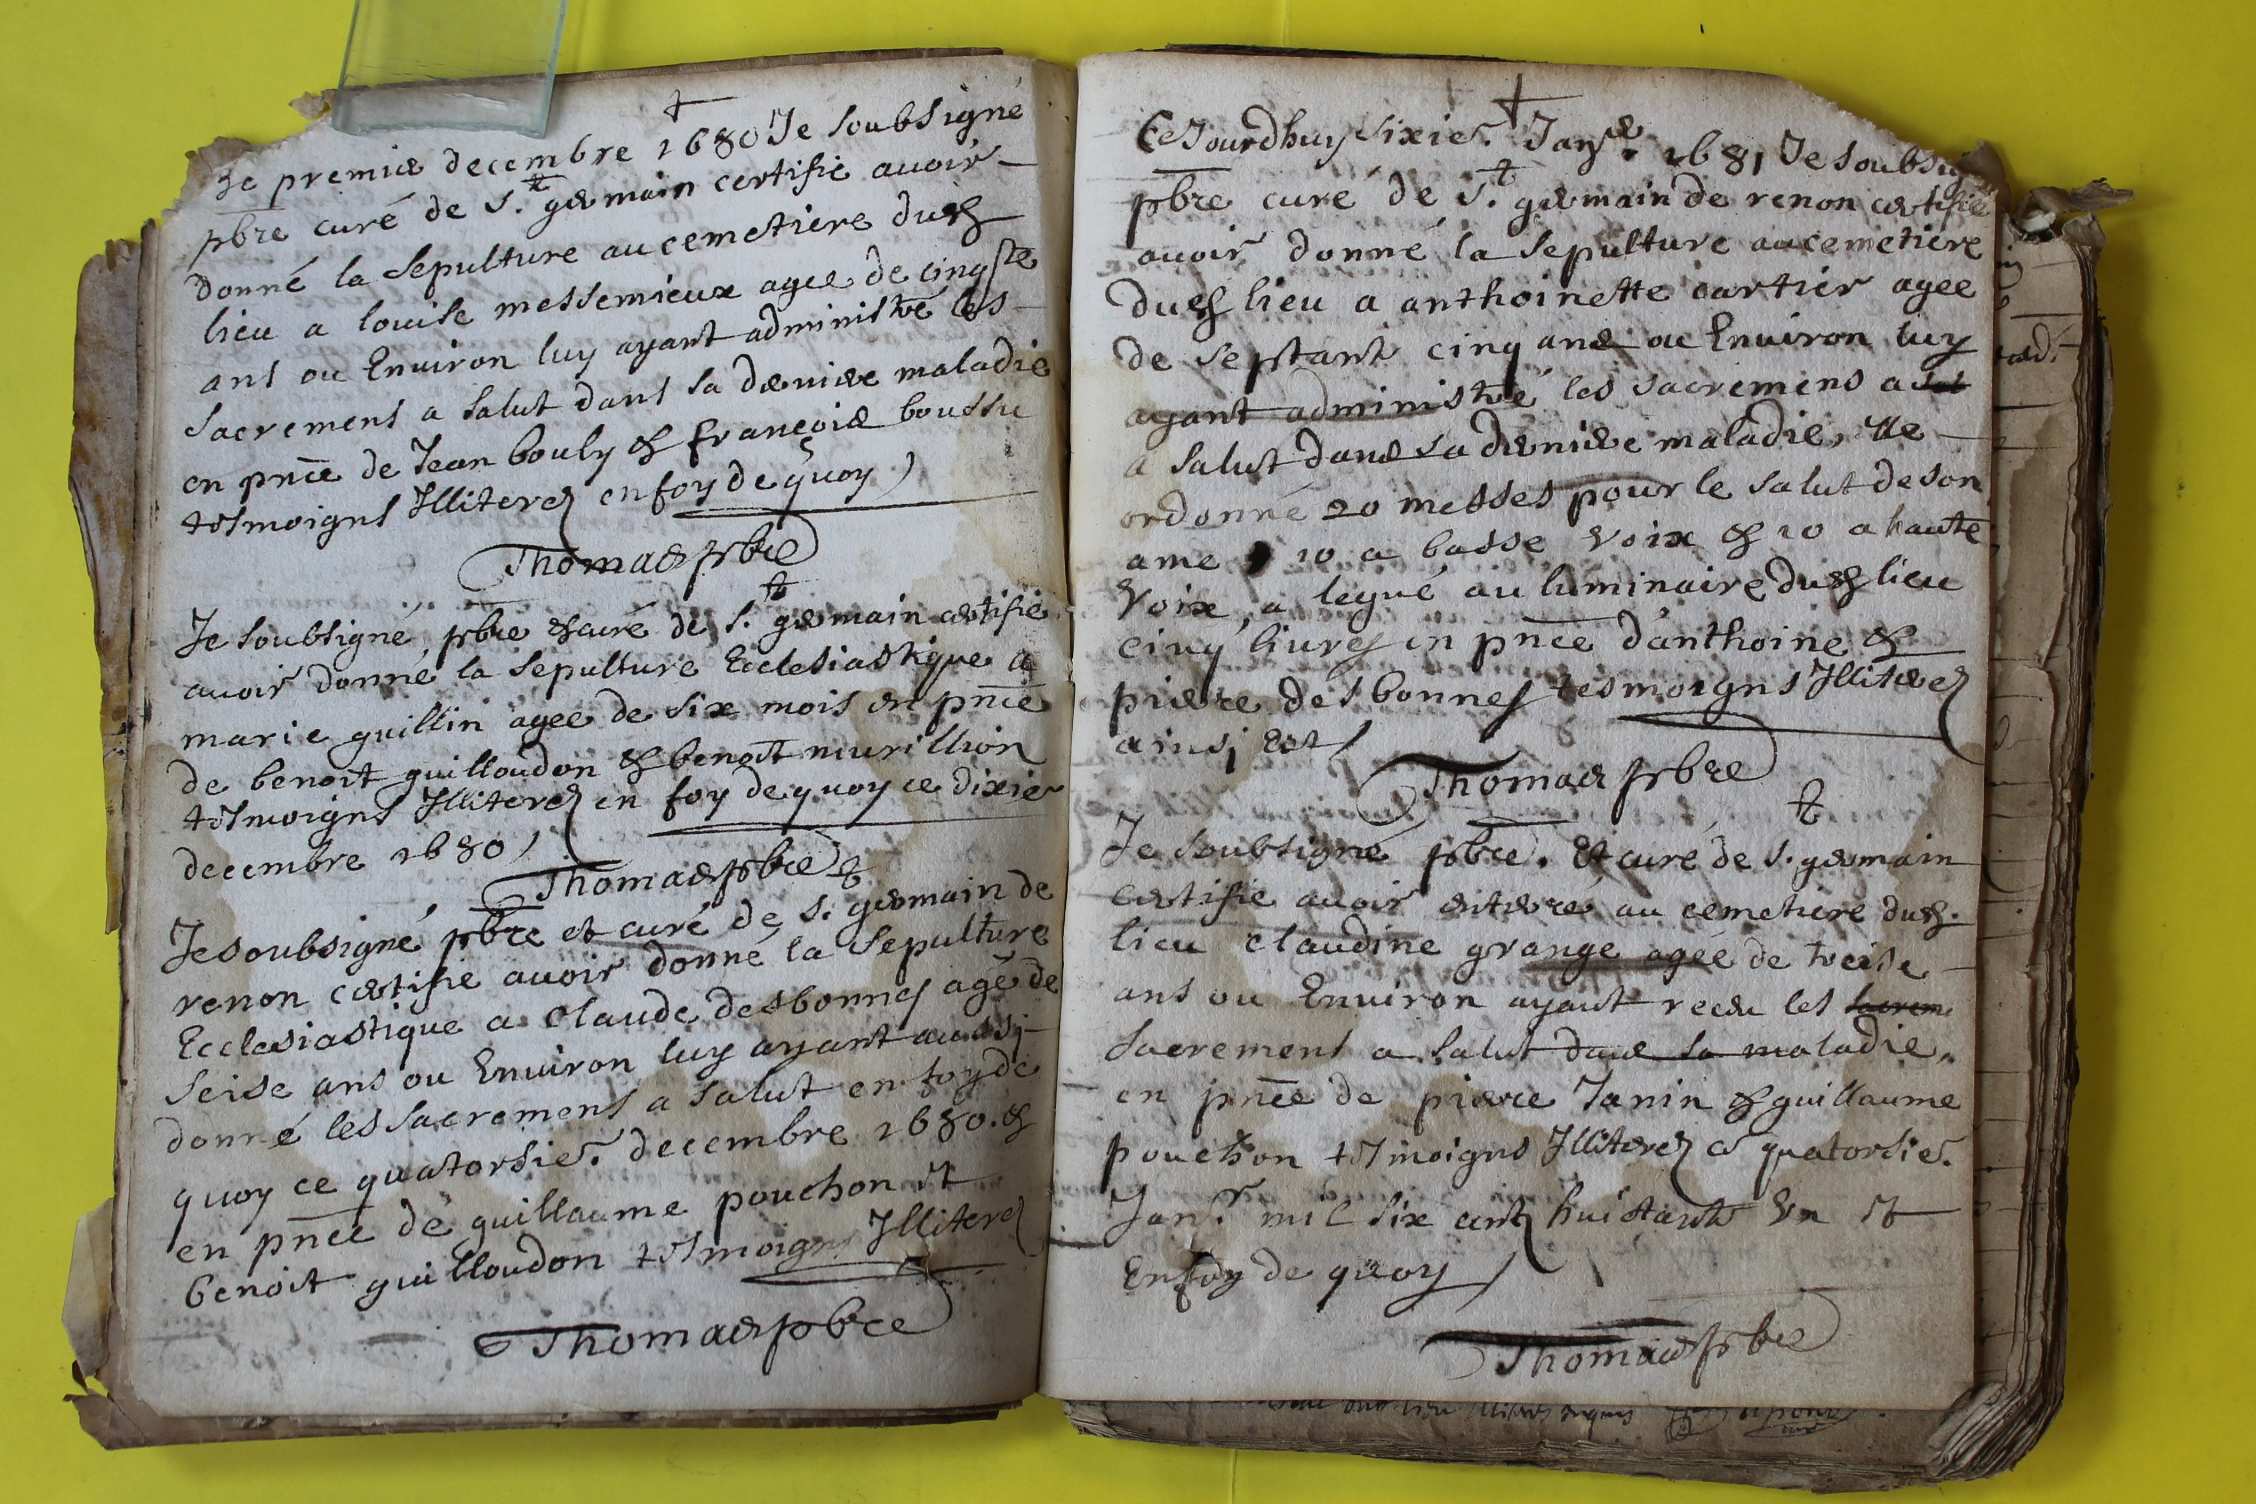 †
Je premier decembre 1680 Je soubsigné
pbre curé de St. germain certifie avoir
donné la sepulture au cemetiere dud
lieu a louise messemieux agee de cinqte
ans ou Environ luy ayant administré les
sacremens a salut dans sa derniere maladie
en pnce de Jean bouly & françois boussu
tesmoigns Illiterez en foy de quoy
Thomas pbre
Je soubsigné pbre & curé de St. germain certifie
avoir donné la sepulture Ecclesiastique a
marie guillin agee de six mois en pnce
de benoit guilloudon & benoit murillion
tesmoigns Illiterez en foy de quoy ce dixie
decembre 1680
Thomas pbre
Je soubsigné pbre et curé de St. germain de
renon certifie avoir donné la sepulture
Ecclesiastique a Claude desbonnes agé de
seise ans ou Environ luy ayant aussi
donné les sacremens a salut en foy de
quoy ce quatorsie. decembre 1680. &
en pnce de guillaume pouchon et
benoit guilloudon tesmoigns Illiterez
Thomas pbre
†
Ce Jourdhuy sixie. Janr. 1681 Je soubsig
pbre curé de St. germain de renon certifie
avoir donné la sepulture au cemetiere
dud lieu a anthoinette cartier agee
de septante cinq ans ou Environ luy
ayant administré les sacremens a sal
a salut dans sa derniere maladie, elle
ordonné 20 messes pour le salut de son
ame 10 a basse voix & 10 a haute
voix, a legué au luminaire dud lieu
cinq livres en pnce d'anthoine &
pierre desbonnes tesmoigns Illiterez
ainsi est
Thomas pbre
Je soubsigné pbre. Et curé de St. germain
certifie avoir enterré au cemetiere dud.
lieu claudine grange agée de treise
ans ou Environ ayant receu les sacrem
sacremens a salut dans sa maladie.
en pnce de pierre Janin & guillaume
pouchon tesmoigns Illiterez ce quatorsie.
Janr. mil six cents huictante Un et
En foy de quoy
Thomas pbre